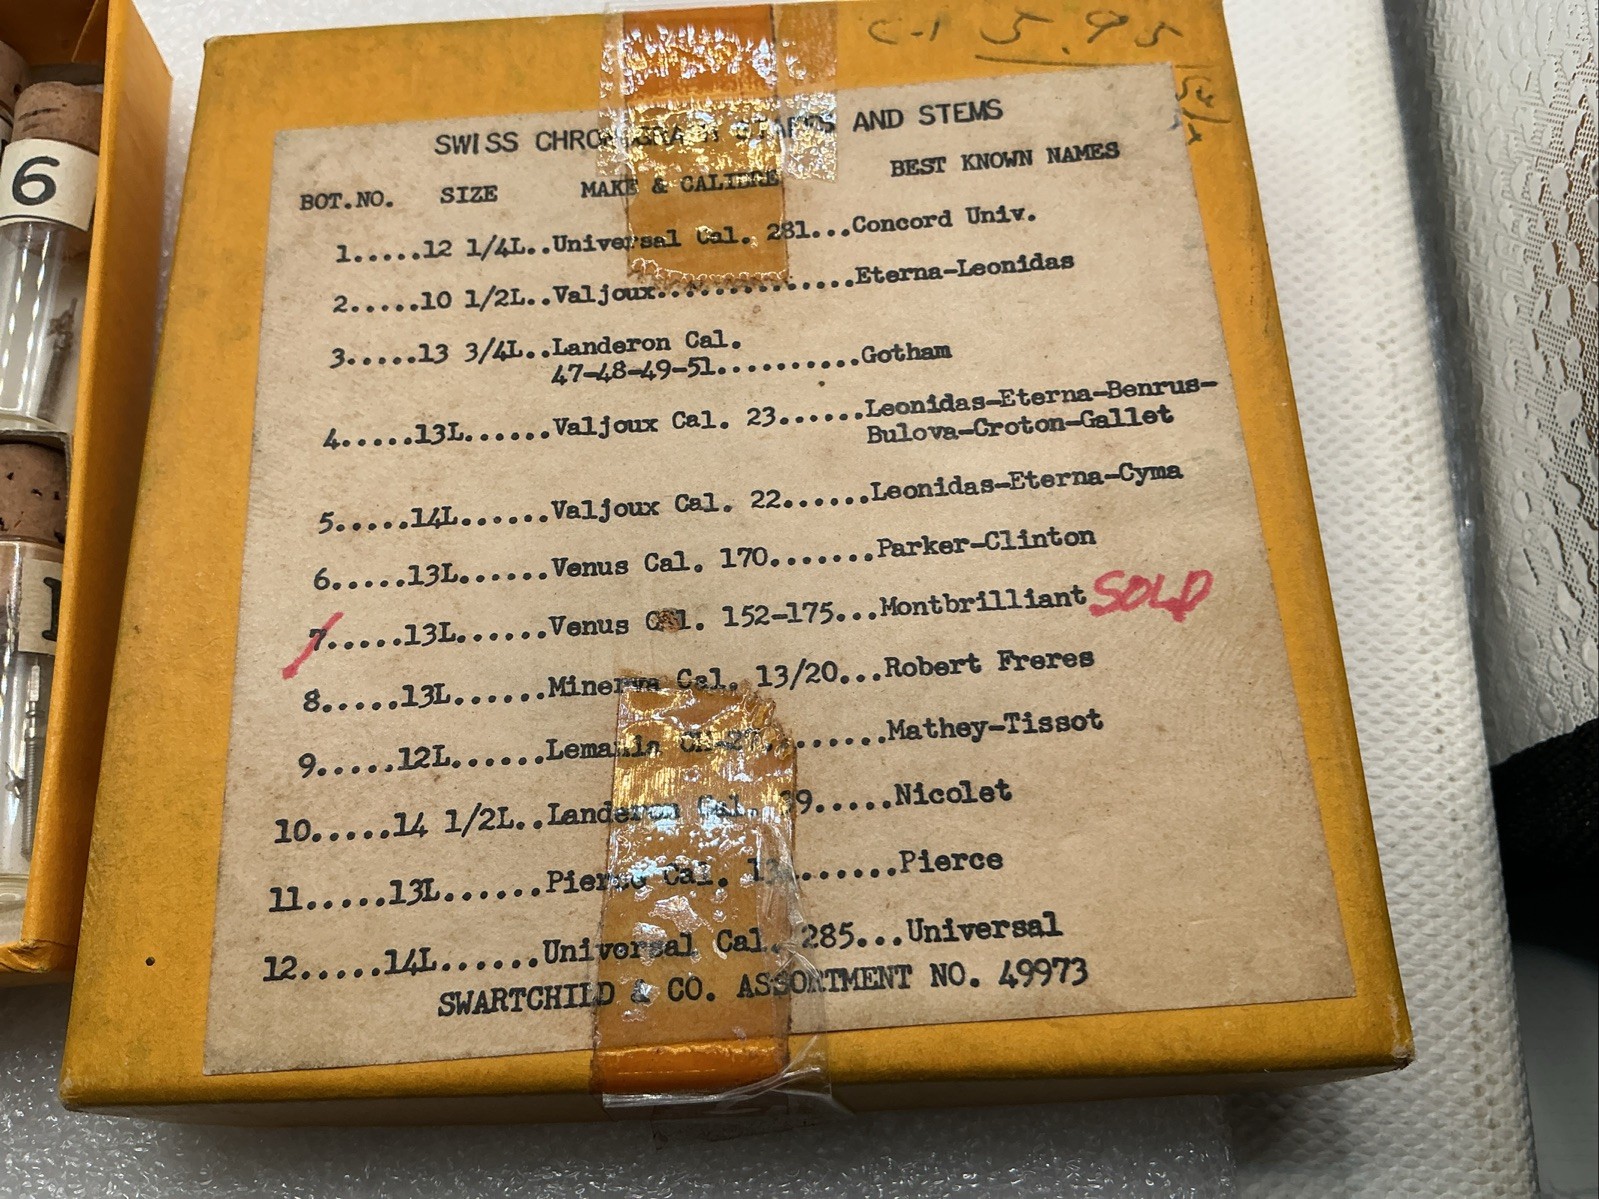 5.95
SWISS CHRONOGRAPH STAFFS AND STEMS
BOT.NO. SIZE MAKE & CALIBRE BEST KNOWN NAMES
1.....12 1/4L..Universal Cal. 281...Concord Univ.
2.....10 1/2L..Valjoux..............Eterna-Leonidas
3.....13 3/4L..Landeron Cal.
47-48-49-51..........Gotham
4.....13L......Valjoux Cal. 23......Leonidas-Eterna-Benrus-
Bulova-Croton-Gallet
5.....14L......Valjoux Cal. 22......Leonidas-Eterna-Cyma
6.....13L......Venus Cal. 170.......Parker-Clinton
7.....13L......Venus Cal. 152-175...Montbrilliant SOLD
8.....13L......Minerva Cal. 13/20...Robert Freres
9.....12L......Lemania CH-27........Mathey-Tissot
10.....14 1/2L..Landeron Cal. 39.....Nicolet
11.....13L......Pierce Cal. .......Pierce
12.....14L......Universal Cal. 285...Universal
SWARTCHILD & CO. ASSORTMENT NO. 49973
6
1